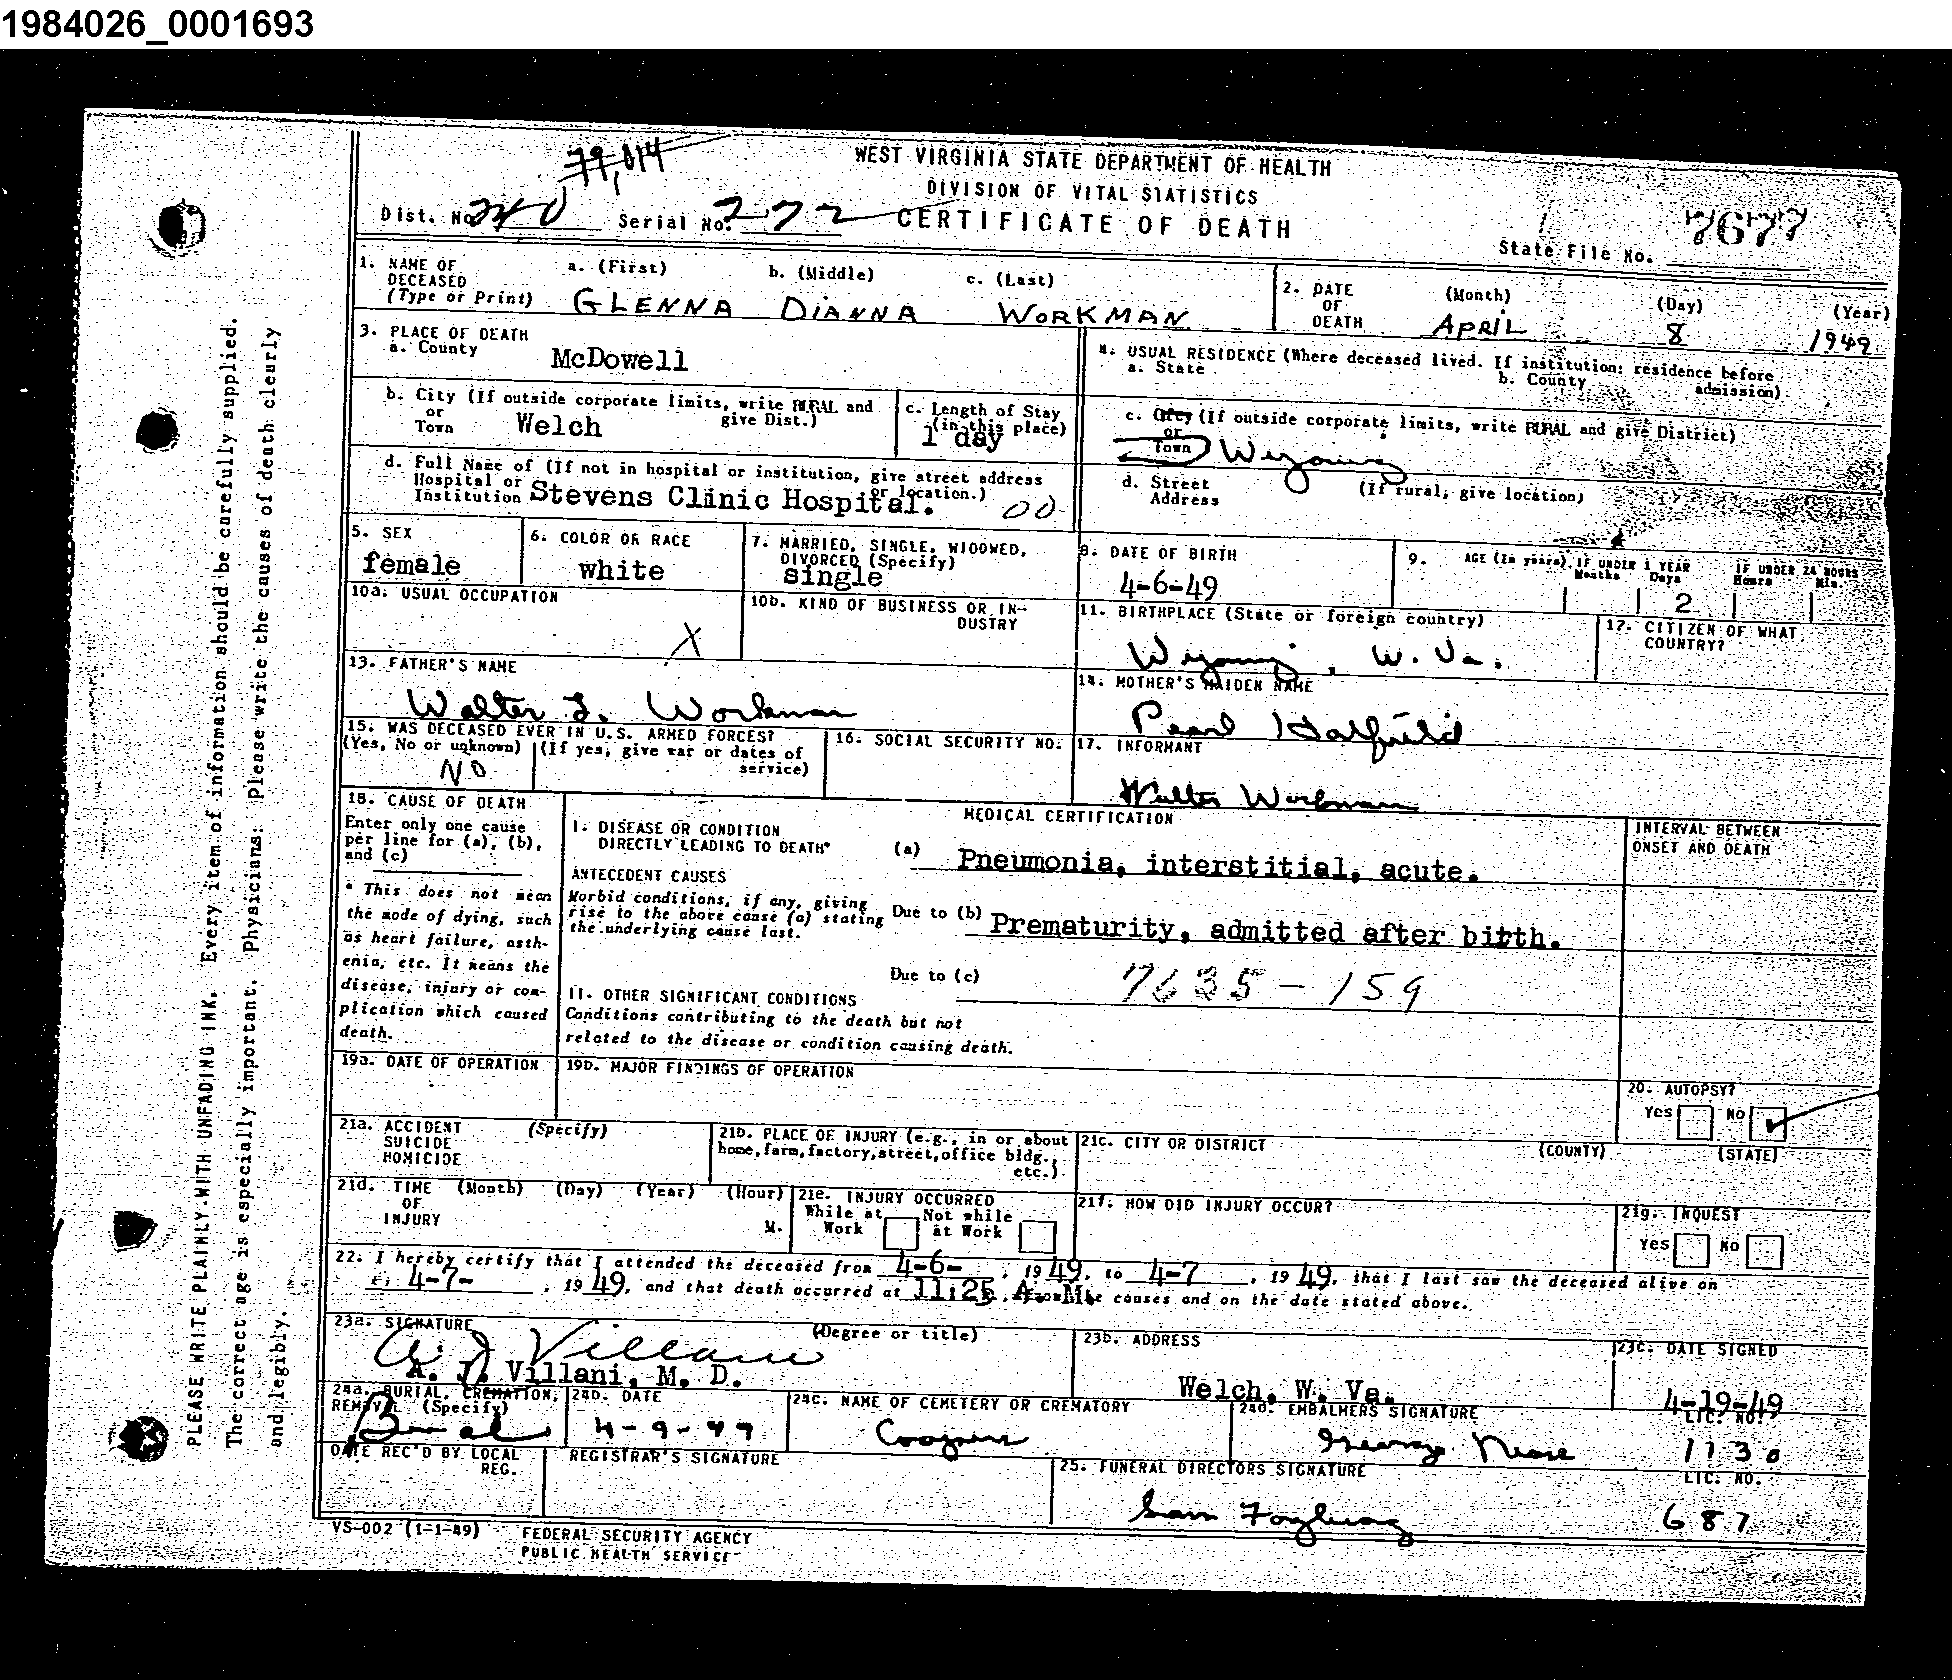 1984026_0001693
79,014
WEST VIRGINIA STATE DEPARTMENT OF HEALTH
DIVISION OF VITAL STATISTICS
Dist. No. 240 Serial No. 272 CERTIFICATE OF DEATH
State File No. 7677
1. NAME OF DECEASED (Type or Print) a. (First) b. (Middle) c. (Last)
GLENNA DIANNA WORKMAN
2. DATE OF DEATH (Month) (Day) (Year)
APRIL 8 1949
3. PLACE OF DEATH
a. County McDowell
4. USUAL RESIDENCE (Where deceased lived. If institution: residence before admission)
a. State b. County
b. City (If outside corporate limits, write RURAL and give Dist.)
or Town Welch
c. Length of Stay (in this place)
1 day
c. City (If outside corporate limits, write RURAL and give District)
or Town Wyoming
d. Full Name of (If not in hospital or institution, give street address or location.)
Hospital or Institution Stevens Clinic Hospital. 00
d. Street Address (If rural, give location)
5. SEX
female
6. COLOR OR RACE
white
7. MARRIED, SINGLE, WIDOWED, DIVORCED (Specify)
single
8. DATE OF BIRTH
4-6-49
9. AGE (In years) IF UNDER 1 YEAR Months Days IF UNDER 24 HOURS Hours Min.
2
10a. USUAL OCCUPATION
X
10b. KIND OF BUSINESS OR INDUSTRY
11. BIRTHPLACE (State or foreign country)
Wyoming, W. Va.
12. CITIZEN OF WHAT COUNTRY?
13. FATHER'S NAME
Walter L. Workman
14. MOTHER'S MAIDEN NAME
Pearl Hatfield
15. WAS DECEASED EVER IN U.S. ARMED FORCES?
(Yes, No or unknown) (If yes, give war or dates of service)
NO
16. SOCIAL SECURITY NO.
17. INFORMANT
Walter Workman
18. CAUSE OF DEATH
Enter only one cause per line for (a), (b), and (c)
* This does not mean the mode of dying, such as heart failure, asthenia, etc. It means the disease, injury or complication which caused death.
MEDICAL CERTIFICATION
INTERVAL BETWEEN ONSET AND DEATH
I. DISEASE OR CONDITION DIRECTLY LEADING TO DEATH*
(a) Pneumonia, interstitial, acute.
ANTECEDENT CAUSES
Morbid conditions, if any, giving rise to the above cause (a) stating the underlying cause last.
Due to (b) Prematurity, admitted after birth.
Due to (c)
7635-159
II. OTHER SIGNIFICANT CONDITIONS
Conditions contributing to the death but not related to the disease or condition causing death.
19a. DATE OF OPERATION
19b. MAJOR FINDINGS OF OPERATION
20. AUTOPSY?
Yes No
21a. ACCIDENT SUICIDE HOMICIDE (Specify)
21b. PLACE OF INJURY (e.g., in or about home, farm, factory, street, office bldg., etc.)
21c. CITY OR DISTRICT (COUNTY) (STATE)
21d. TIME OF INJURY (Month) (Day) (Year) (Hour) M.
21e. INJURY OCCURRED
While at Work Not while at Work
21f. HOW DID INJURY OCCUR?
21g. INQUEST
Yes No
22. I hereby certify that I attended the deceased from 4-6-, 1949, to 4-7, 1949, that I last saw the deceased alive on
4-7-, 1949, and that death occurred at 11:25 A. M. from the causes and on the date stated above.
23a. SIGNATURE (Degree or title)
A J Villani
A. J. Villani, M. D.
23b. ADDRESS
Welch, W. Va.
23c. DATE SIGNED
4-19-49
24a. BURIAL, CREMATION, REMOVAL (Specify)
Burial
24b. DATE
4-9-49
24c. NAME OF CEMETERY OR CREMATORY
24d. EMBALMERS SIGNATURE
George
LIC. NO.
1130
DATE REC'D BY LOCAL REG.
REGISTRAR'S SIGNATURE
25. FUNERAL DIRECTORS SIGNATURE
Sam
LIC. NO.
687
VS-002 (1-1-49)
FEDERAL SECURITY AGENCY
PUBLIC HEALTH SERVICE
PLEASE WRITE PLAINLY WITH UNFADING INK. Every item of information should be carefully supplied.
The correct age is especially important. Physicians: please write the causes of death clearly
and legibly.